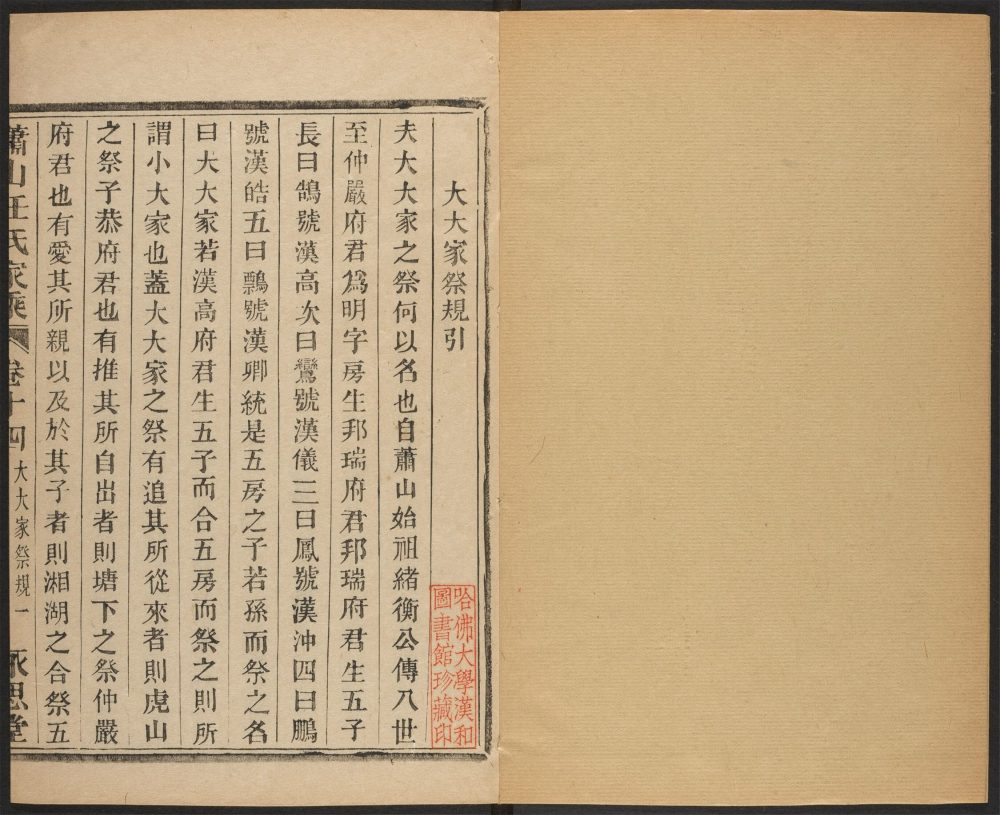 大大家祭規引
夫大大家之祭何以名也自蕭山始祖緒衡公傳八世
至仲嚴府君爲明字房生邦瑞府君邦瑞府君生五子
長曰鵠號漢高次曰鸞號漢儀三曰鳳號漢沖四曰鵬
號漢皓五曰鶚號漢卿統是五房之子若孫而祭之名
曰大大家若漢高府君生五子而合五房而祭之則所
謂小大家也蓋大大家之祭有追其所從來者則虎山
之祭子恭府君也有推其所自出者則塘下之祭仲嚴
府君也有愛其所親以及於其子者則湘湖之合祭五
蕭山王氏家乘 卷十四 大大家祭規一 永思堂
哈佛大學漢和
圖書館珍藏印